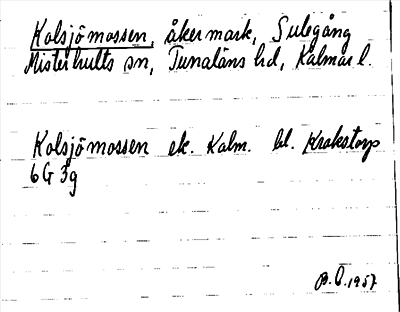 Kolsjömossen, åkermark, Sulegång
Misterhults sn, Tunaläns hd, Kalmar l.
Kolsjömossen ek. Kalm. bl. Krokstorp
6G3g
B.O.1957